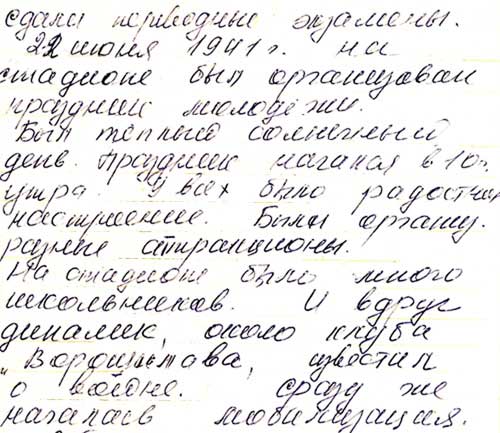 сдали переводные экзамены.
22 июня 1941 г. на
стадионе был организован
праздник молодёжи.
Был тёплый солнечный
день. Праздник начался в 10ч.
утра. У всех было радостное
настроение. Были органи.
разные аттракционы.
На стадионе было много
школьников. И вдруг
динамик, около клуба
"Ворошилова, известил
о войне. Сразу же
началась мобилизация.